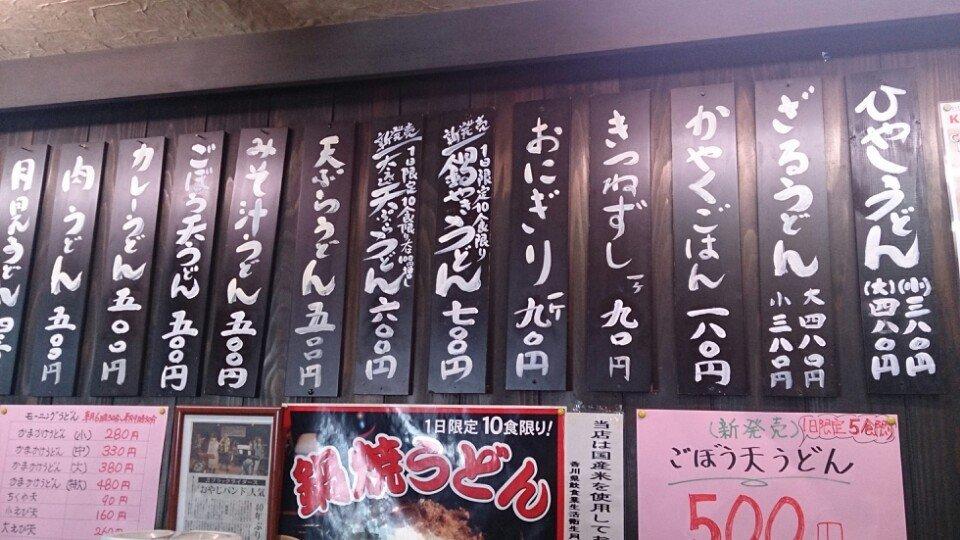 ひやしうどん (小)三八〇円 (大)四八〇円
ざるうどん 大四八〇円 小三八〇円
かやくごはん 一八〇円
きつねずし 一ケ 九〇円
おにぎり 一ケ 九〇円
新発売 1日限定10食限り
鍋やきうどん 七〇〇円
新発売 1日限定10食限り
天ぷらうどん 六〇〇円
天ぷらうどん 五〇〇円
みそ汁うどん 五〇〇円
ごぼう天うどん 五〇〇円
カレーうどん 五〇〇円
肉うどん 五〇〇円
月見うどん
モーニングうどん
かまかけうどん (小) 280円
かまかけうどん (中) 330円
かまかけうどん (大) 380円
かまかけうどん (特大) 480円
ちくや天 90円
小えび天 160円
大えび天 260円
おやじバンド人気
1日限定10食限り!
鍋焼うどん
当店は国産米を使用して
香川県飲食業生活衛生同
(新発売) 1日限定5食限り
ごぼう天うどん
500円